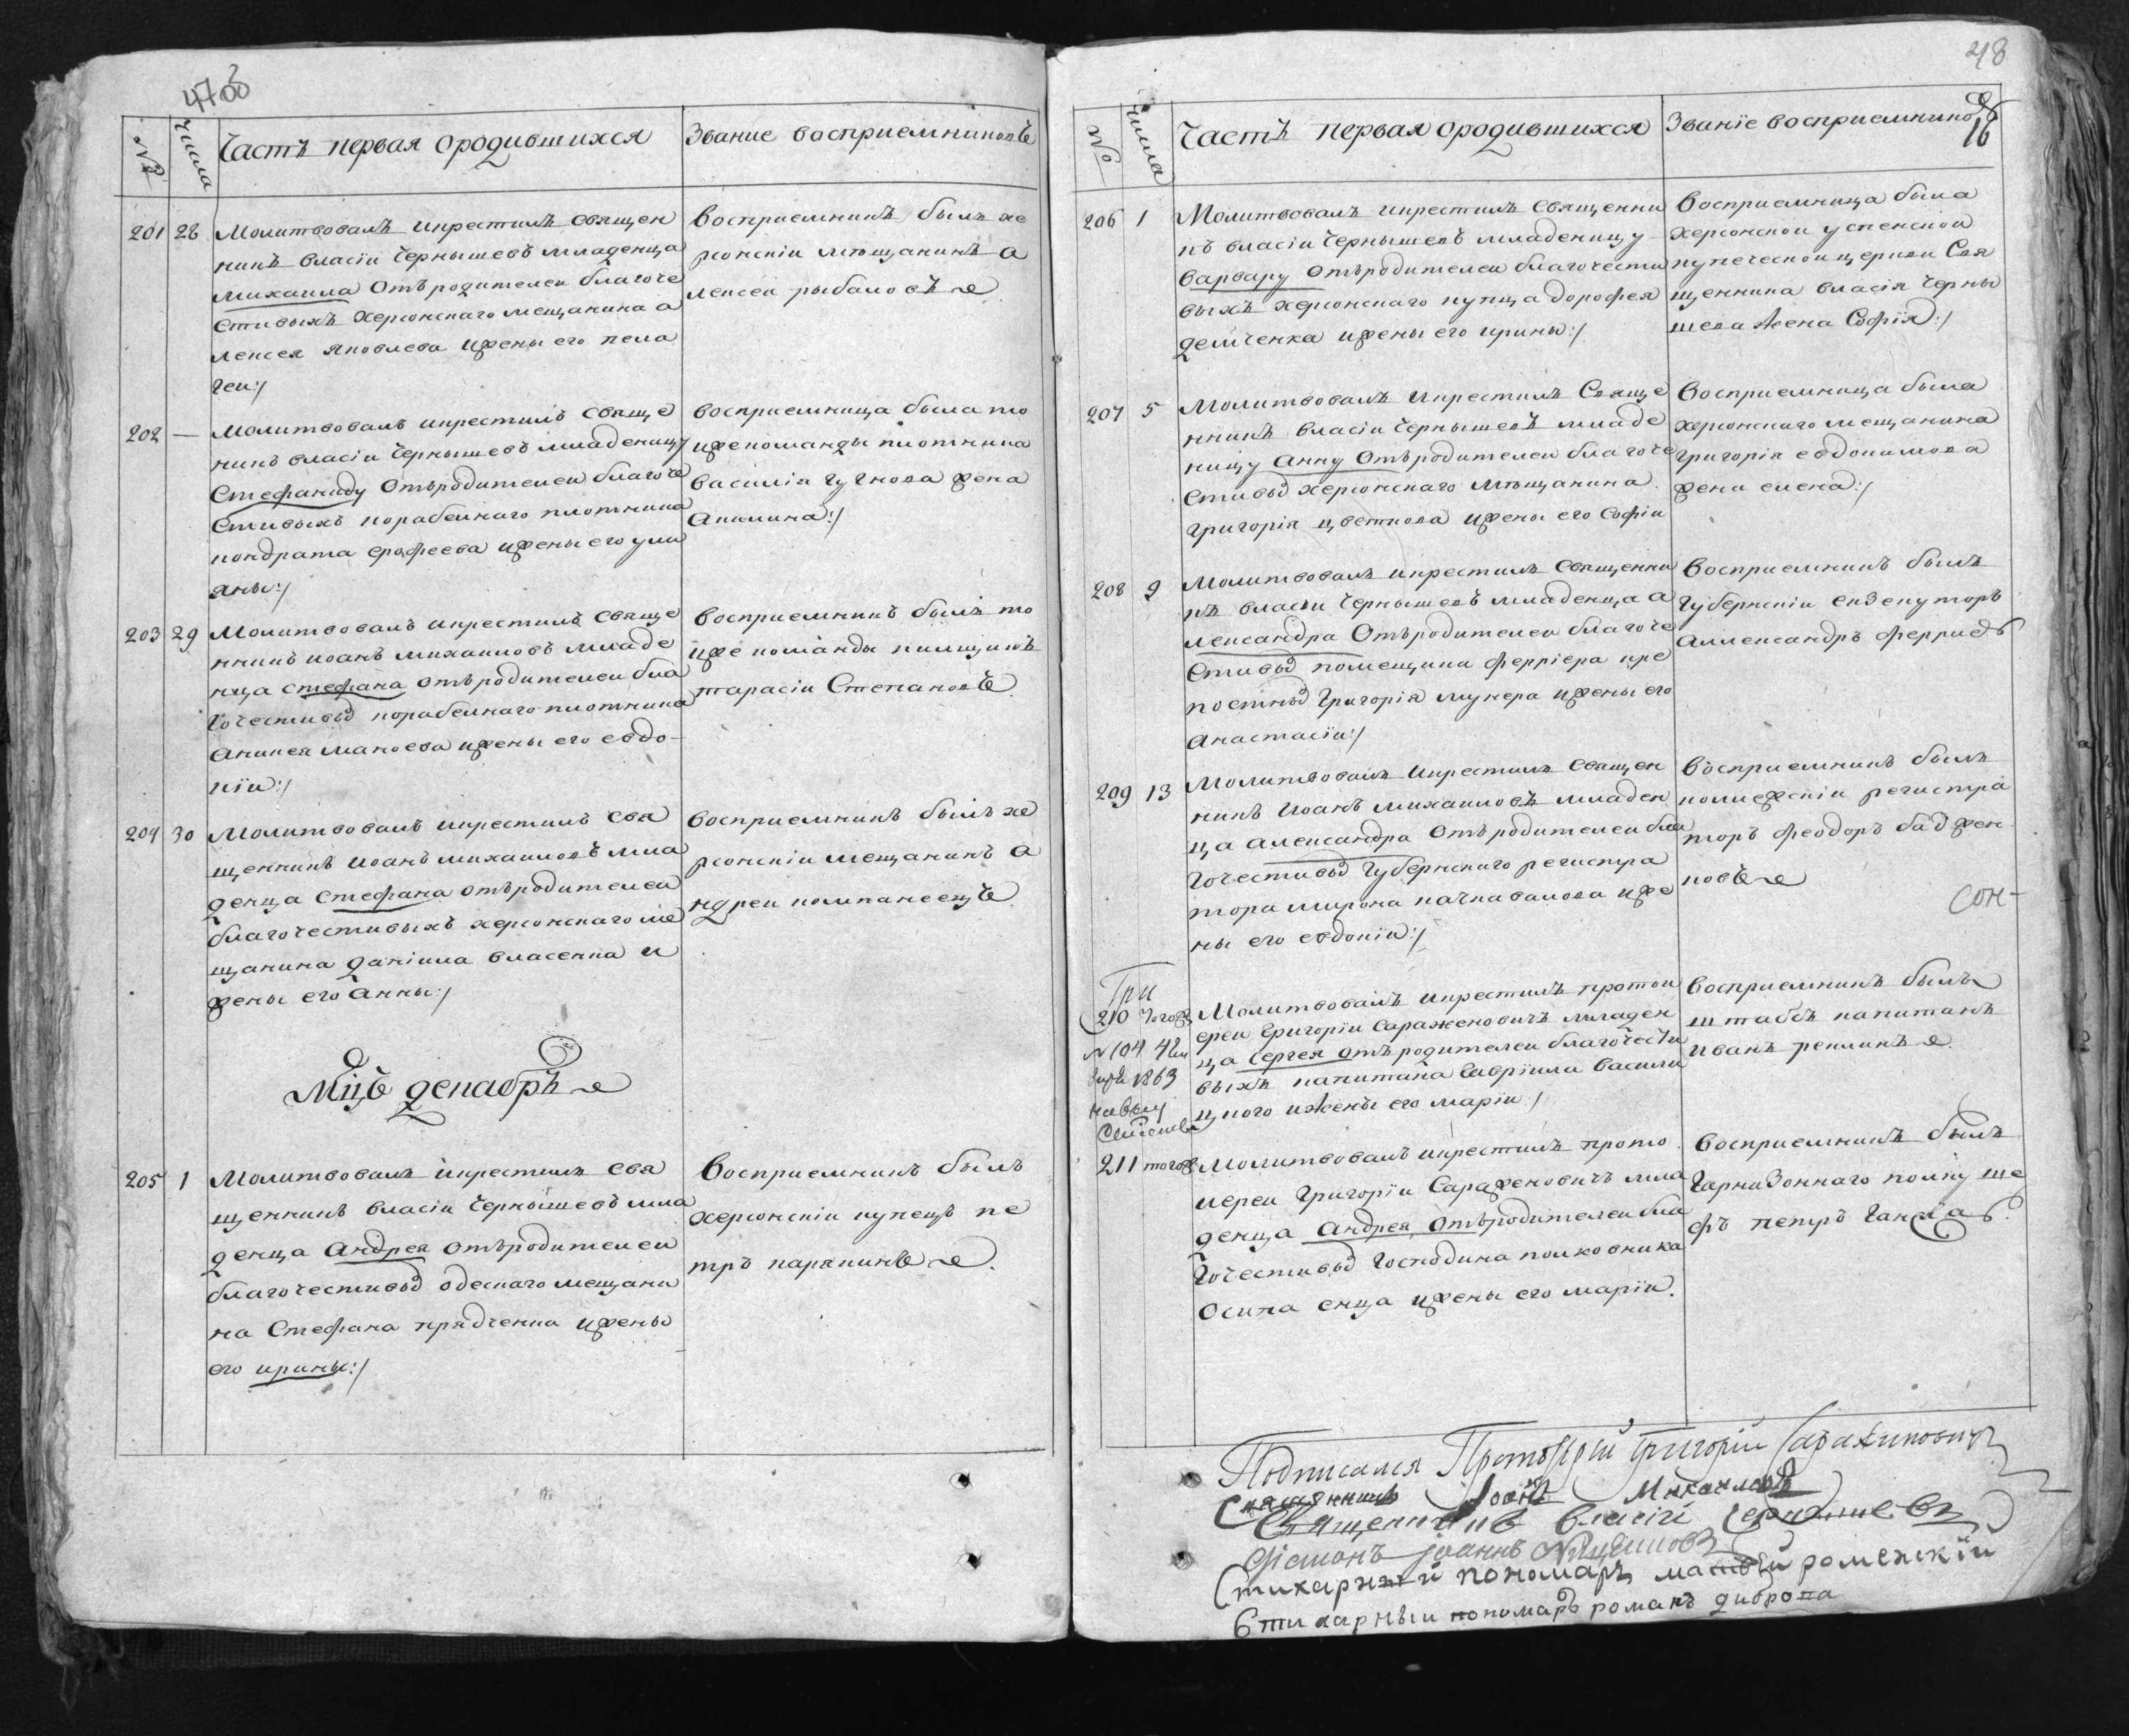 47об
№ Числа Часть первая ородившихся Звание восприемниковъ
201 28 Молитвовалъ икрестилъ священ
никъ власіи Чернышевъ младенца
михаила Отъродителеи благоче
стивыхъ херсонскаго мещанина а
лексея яковлева ижены его пела
геи:/
восприемникъ былъ хе
рсонскіи мѣщанинъ а
лексеи рыбаловъ
202 — Молитвовалъ икрестилъ свяще
никъ власіи Чернышевъ младеницу
Стефаниду Отъродителеи благоче
стивыхъ корабелнаго плотника
кондрата ерофеева ижены его ули
яны:/
восприемница была то
ижекоманды плотника
василія гугнова жена
Акилина:/
203 29 Молитвовалъ икрестилъ свяще
нникъ иоанъ михаиловъ младе
нца стефана отъродителеи бла
гочестивыхъ корабелнаго плотника
Аникея макеева ижены его евдо-
кіи:/
восприемникъ былъ то
иже команды пилщикъ
тарасіи Степановъ
204 30 Молитвовалъ икрестилъ свя
щенникъ иоанъ михаиловъ мла
денца стефана отъродителеи
благочестивыхъ херсонскаго ме
щанина даніила власенка и
жены его Анны:/
восприемникъ былъ хе
рсонскіи мещанинъ а
ндреи компанеецъ
Мцъ декабръ
205 1 Молитвовалъ икрестилъ свя
щенникъ власіи Чернышевъ мла
денца Андрея отъродителеи
благочестивыхъ одескаго мещани
на Стефана прядченка ижены
его ирины:/
Восприемникъ былъ
херсонскіи купецъ пе
тръ карякинъ
48
16
№ Числа Часть первая ородившихся Званіе восприемнико
206 1 Молитвовалъ икрестилъ священни
къ власіи Чернышевъ младеницу
варвару Отъродителеи благочести
выхъ херсонскаго купца дорофея
демченка ижены его ирины:/
Восприемница была
херсонскои успенскои
купеческои церкви Свя
щенника власія Черны
шева жена Софія:/
207 5 Молитвовалъ икрестилъ Свяще
нникъ власіи Чернышевъ младе
ницу Анну Отъродителеи благоче
стивыхъ херсонскаго мѣщанина
григорія цветкова ижены его Софіи
Восприемница была
херсонскаго мещанина
григорія евдокимова
жена елена:/
208 9 Молитвовалъ икрестилъ священни
къ власіи Чернышевъ младенца а
лександра Отъродителеи благоче
стивыхъ помещика ферріера кре
постныхъ григорія мукера ижены его
Анастасіи:/
Восприемникъ былъ
губернскіи екзекуторъ
Аллександръ ферриевъ
209 13 Молитвовалъ икрестилъ священ
никъ иоанъ михаиловъ младен
ца александра Отъродителеи бла
гочестивыхъ губернскаго регистра
тора мирона качкавалова иже
ны его евдокіи:/
Восприемникъ былъ
колежскіи регистра
торъ феодоръ баджен
ковъ
210 тогож Молитвовалъ икрестилъ протои
ереи Григоріи Сараженовичъ младен
ца сергея отъродителеи благочести
выхъ капитана Гавріила васили
цкого ижены его маріи /
Восприемникъ былъ
штабсъ капитанъ
Иванъ реклинъ
211 тогож Молитвовалъ икрестилъ прото
иереи Григоріи Сараженовичъ мла
денца Андрея, отъродителеи бла
гочестивыхъ господина полковника
Осипа енца ижены его маріи.
Восприемникъ былъ
Гарнизоннаго полку ше
фъ петръ Ганжа
Подписался Протоіерей Григорій Саражиновичъ
Священникъ Іоанъ Михаиловъ
Священникъ власій Чернышевъ
Діаконъ іоаннъ
Стихарный пономарь матвей роменскій
Стихарныи пономаръ романъ диброва